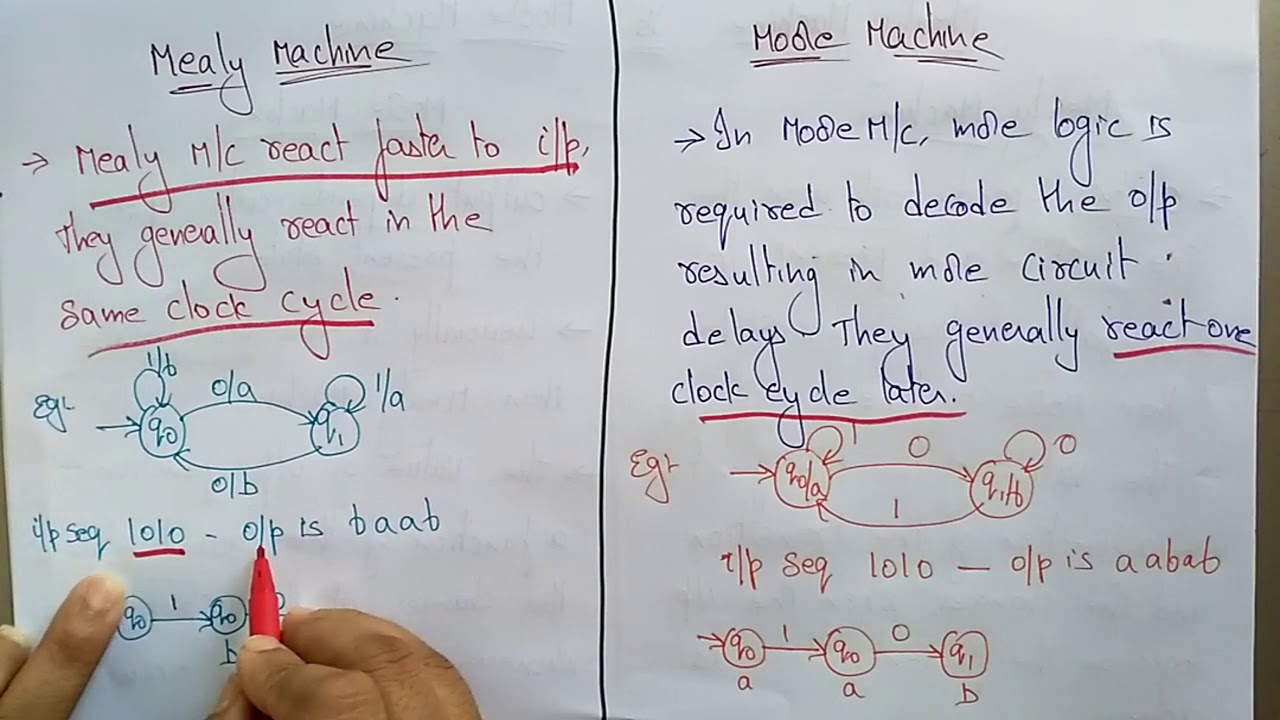 Mealy Machine
→ Mealy M/c react faster to i/p,
They generally react in the
same clock cycle.
Eg:-
1/b
0/a
1/a
q0
q1
0/b
i/p seq 1010 - o/p is baab
q0 1 q0
b
Moore Machine
→ In Moore M/c, more logic is
required to decode the o/p
resulting in more circuit
delays. They generally react one
clock cycle later.
Eg:-
1
0
0
q0/a
q1/b
1
I/p seq 1010 — o/p is aabab
q0 1 q0 0 q1
a a b